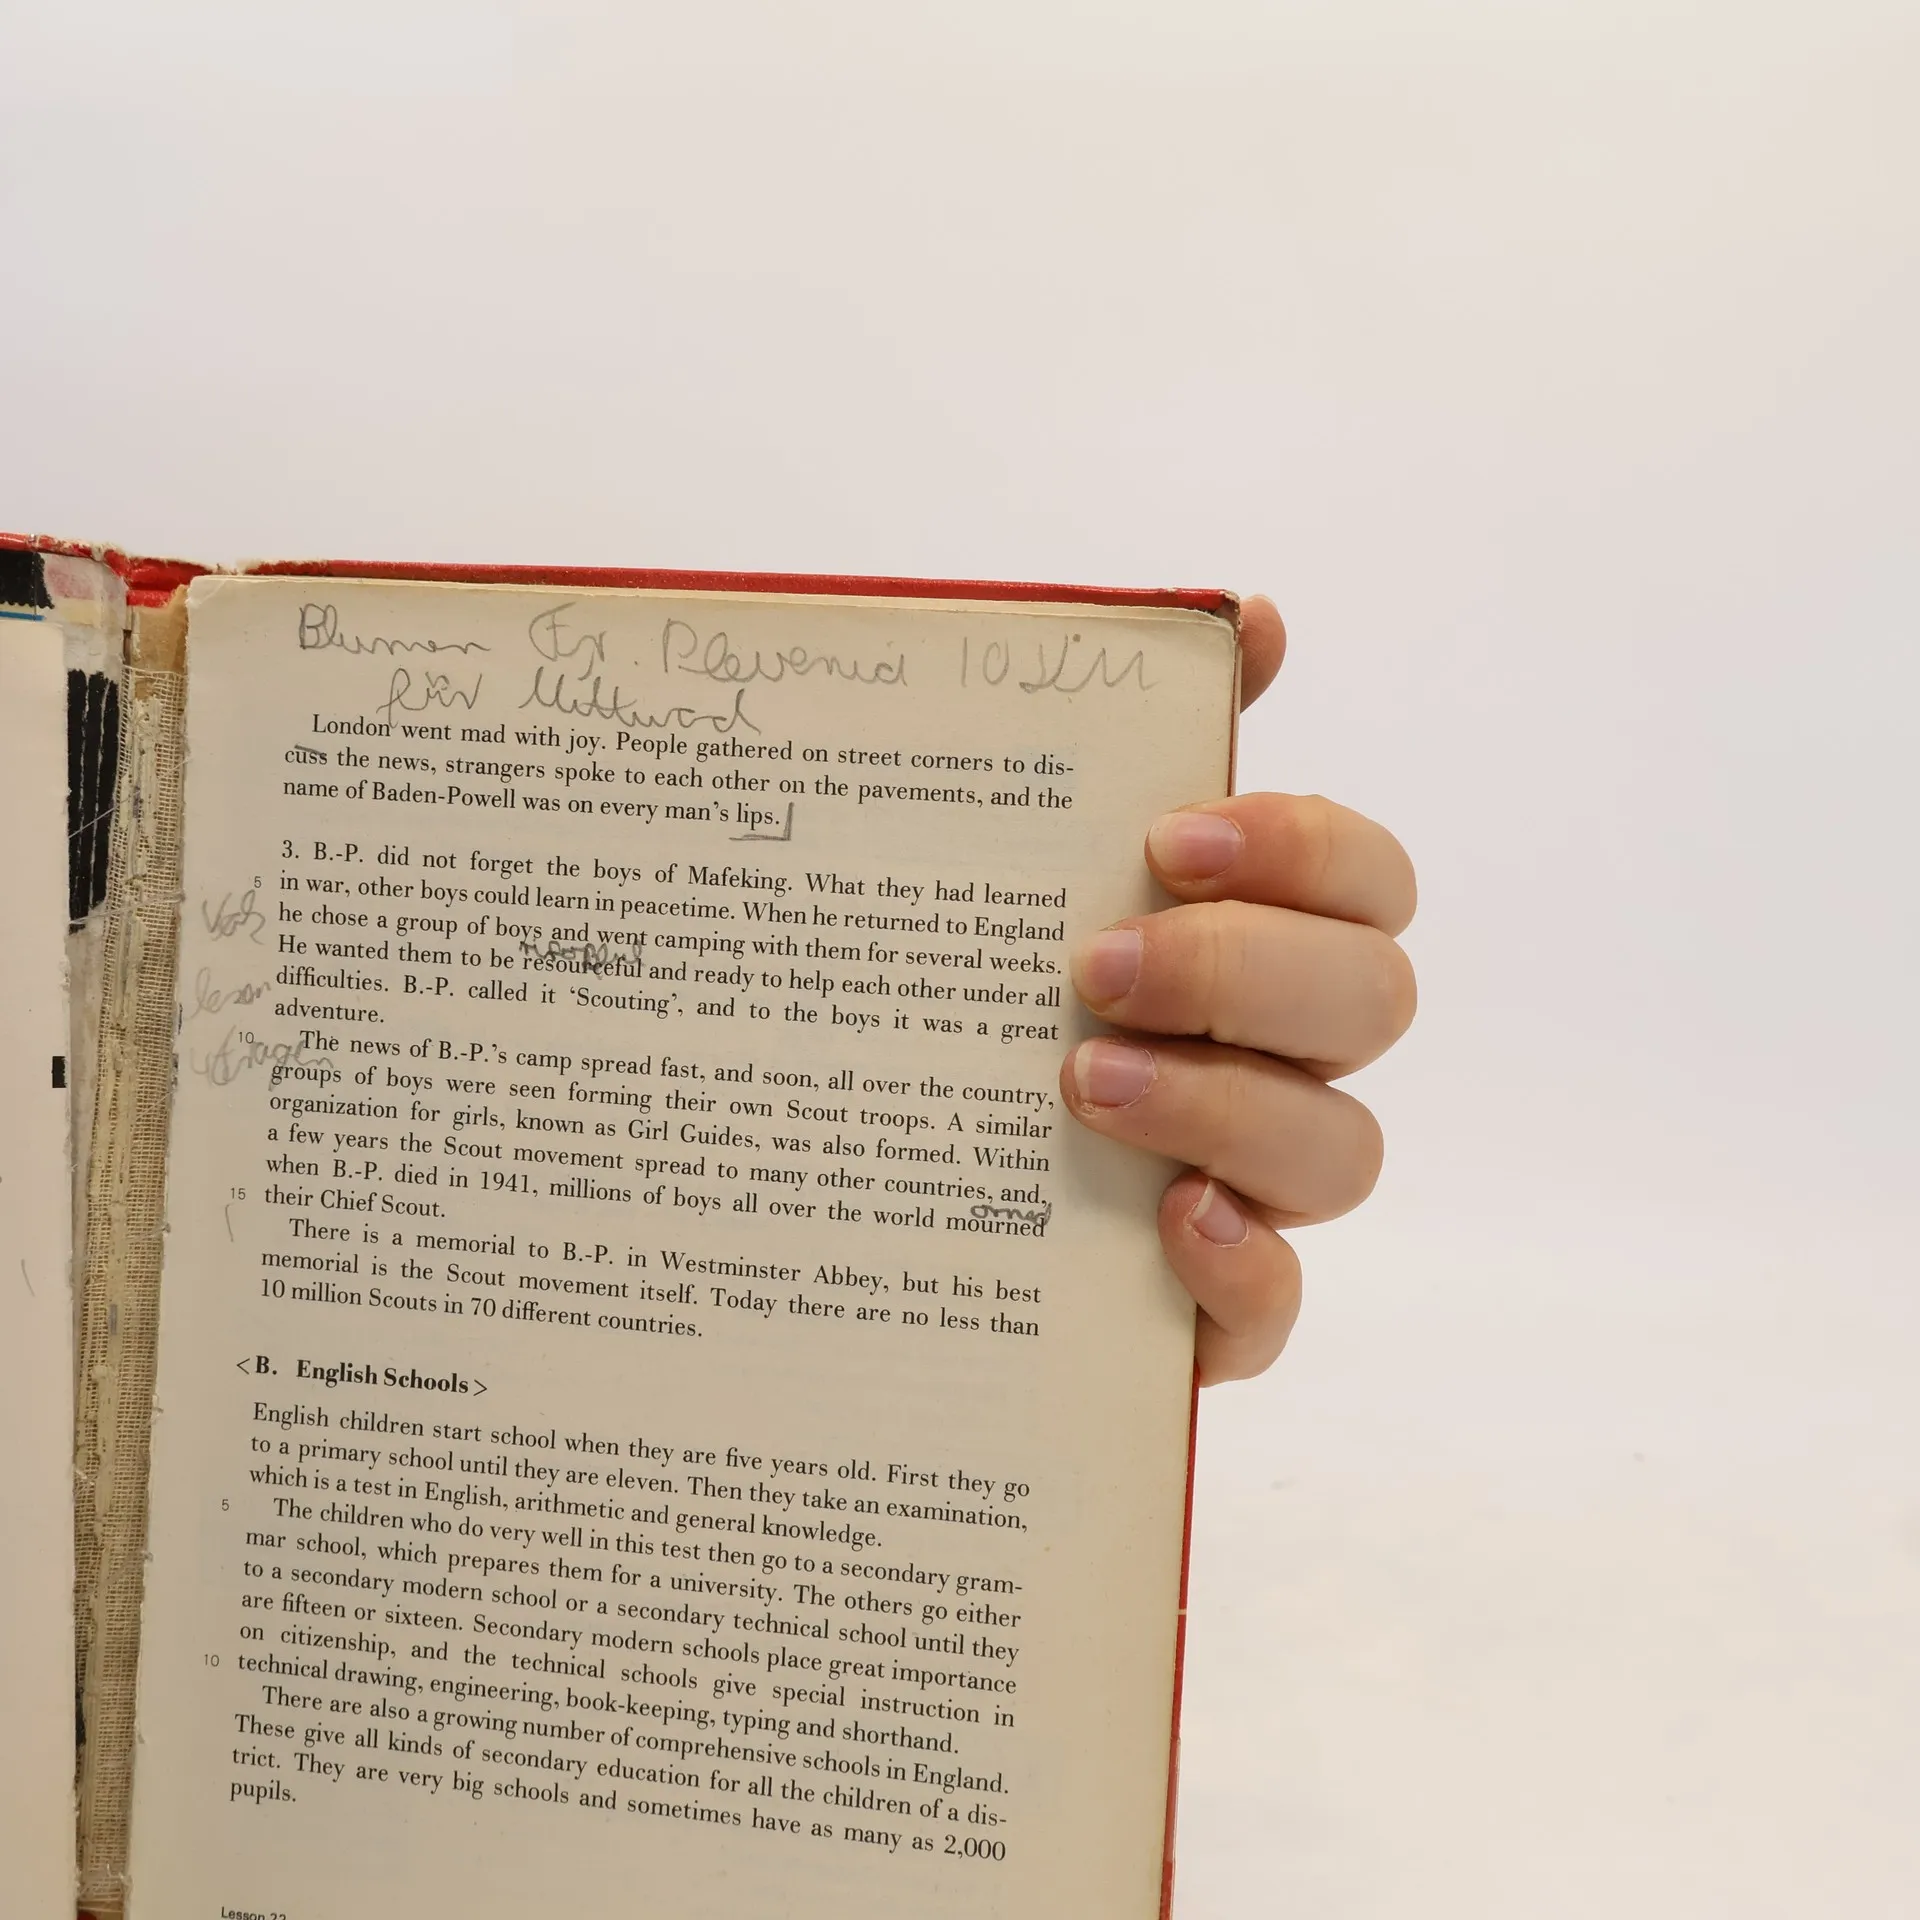 Blumen Fr. Plevenid 10 DM
für Mittwoch
London went mad with joy. People gathered on street corners to dis-
cuss the news, strangers spoke to each other on the pavements, and the
name of Baden-Powell was on every man’s lips.
3. B.-P. did not forget the boys of Mafeking. What they had learned
5 in war, other boys could learn in peacetime. When he returned to England
he chose a group of boys and went camping with them for several weeks.
He wanted them to be resourceful and ready to help each other under all
lesen difficulties. B.-P. called it ‘Scouting’, and to the boys it was a great
adventure.
10 The news of B.-P.’s camp spread fast, and soon, all over the country,
Fragen groups of boys were seen forming their own Scout troops. A similar
organization for girls, known as Girl Guides, was also formed. Within
a few years the Scout movement spread to many other countries, and,
when B.-P. died in 1941, millions of boys all over the world mourned
15 their Chief Scout.
There is a memorial to B.-P. in Westminster Abbey, but his best
memorial is the Scout movement itself. Today there are no less than
10 million Scouts in 70 different countries.
<B. English Schools>
English children start school when they are five years old. First they go
to a primary school until they are eleven. Then they take an examination,
which is a test in English, arithmetic and general knowledge.
5 The children who do very well in this test then go to a secondary gram-
mar school, which prepares them for a university. The others go either
to a secondary modern school or a secondary technical school until they
are fifteen or sixteen. Secondary modern schools place great importance
on citizenship, and the technical schools give special instruction in
10 technical drawing, engineering, book-keeping, typing and shorthand.
There are also a growing number of comprehensive schools in England.
These give all kinds of secondary education for all the children of a dis-
trict. They are very big schools and sometimes have as many as 2,000
pupils.
Lesson 22